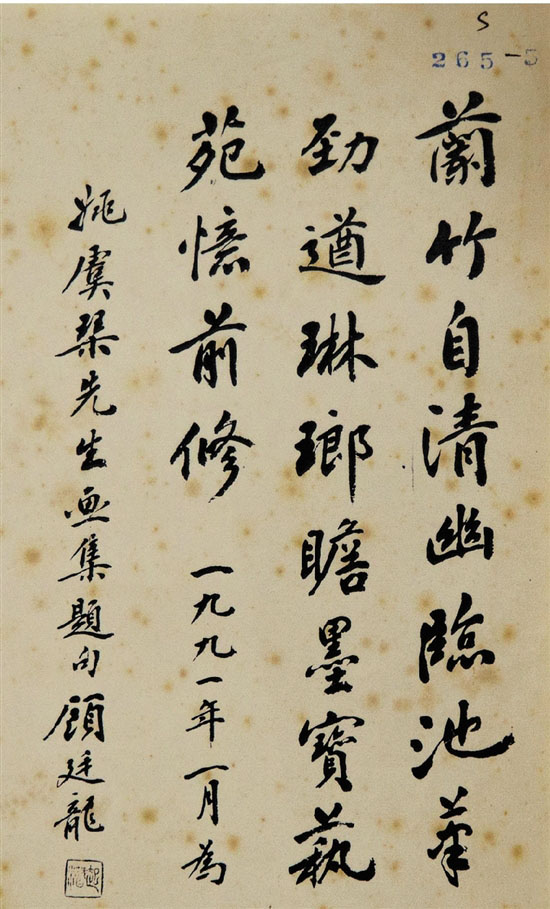 S
265-5
蘭竹自清幽臨池筆
勁遒琳瑯瞻墨寶藝
苑憶前修 一九九一年一月為
姚虞琹先生画集題句顧廷龍